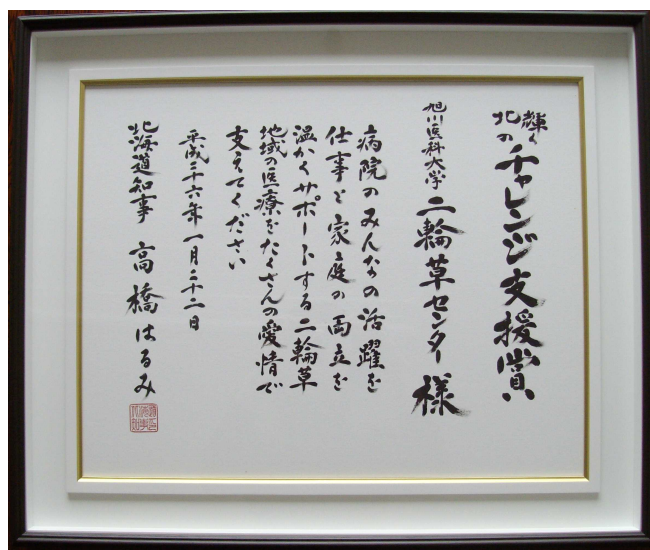 輝く北のチャレンジ支援賞
旭川医科大学 二輪草センター 様
病院のみんなの活躍を
仕事と家庭の両立を
温かくサポートする二輪草
地域の医療をたくさんの愛情で
支えてください
平成二十六年一月二十二日
北海道知事 高橋はるみ